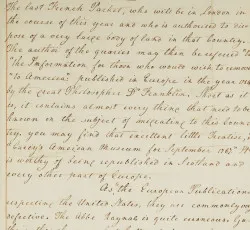 The last French Packet, who will be in London in
the course of this year and who is authorized to dis-
pose of a very large body of land in that Country.
The author of the queries may then be referred to
"the Information for those who would wish to remove
to America" published in Europe in the year
by the great Philosopher Dr Franklin. Short as it
is, it contains almost every thing that need to be
known on the subject of migrating to this Coun-
try. you may find that excellent little Treatise, in
"Carey's American Museum for September
is worthy of being republished in Scotland and
every other part of Europe.
As the European Publications
respecting the United States, they are commonly very
defective. The Abbe Raynal is quite